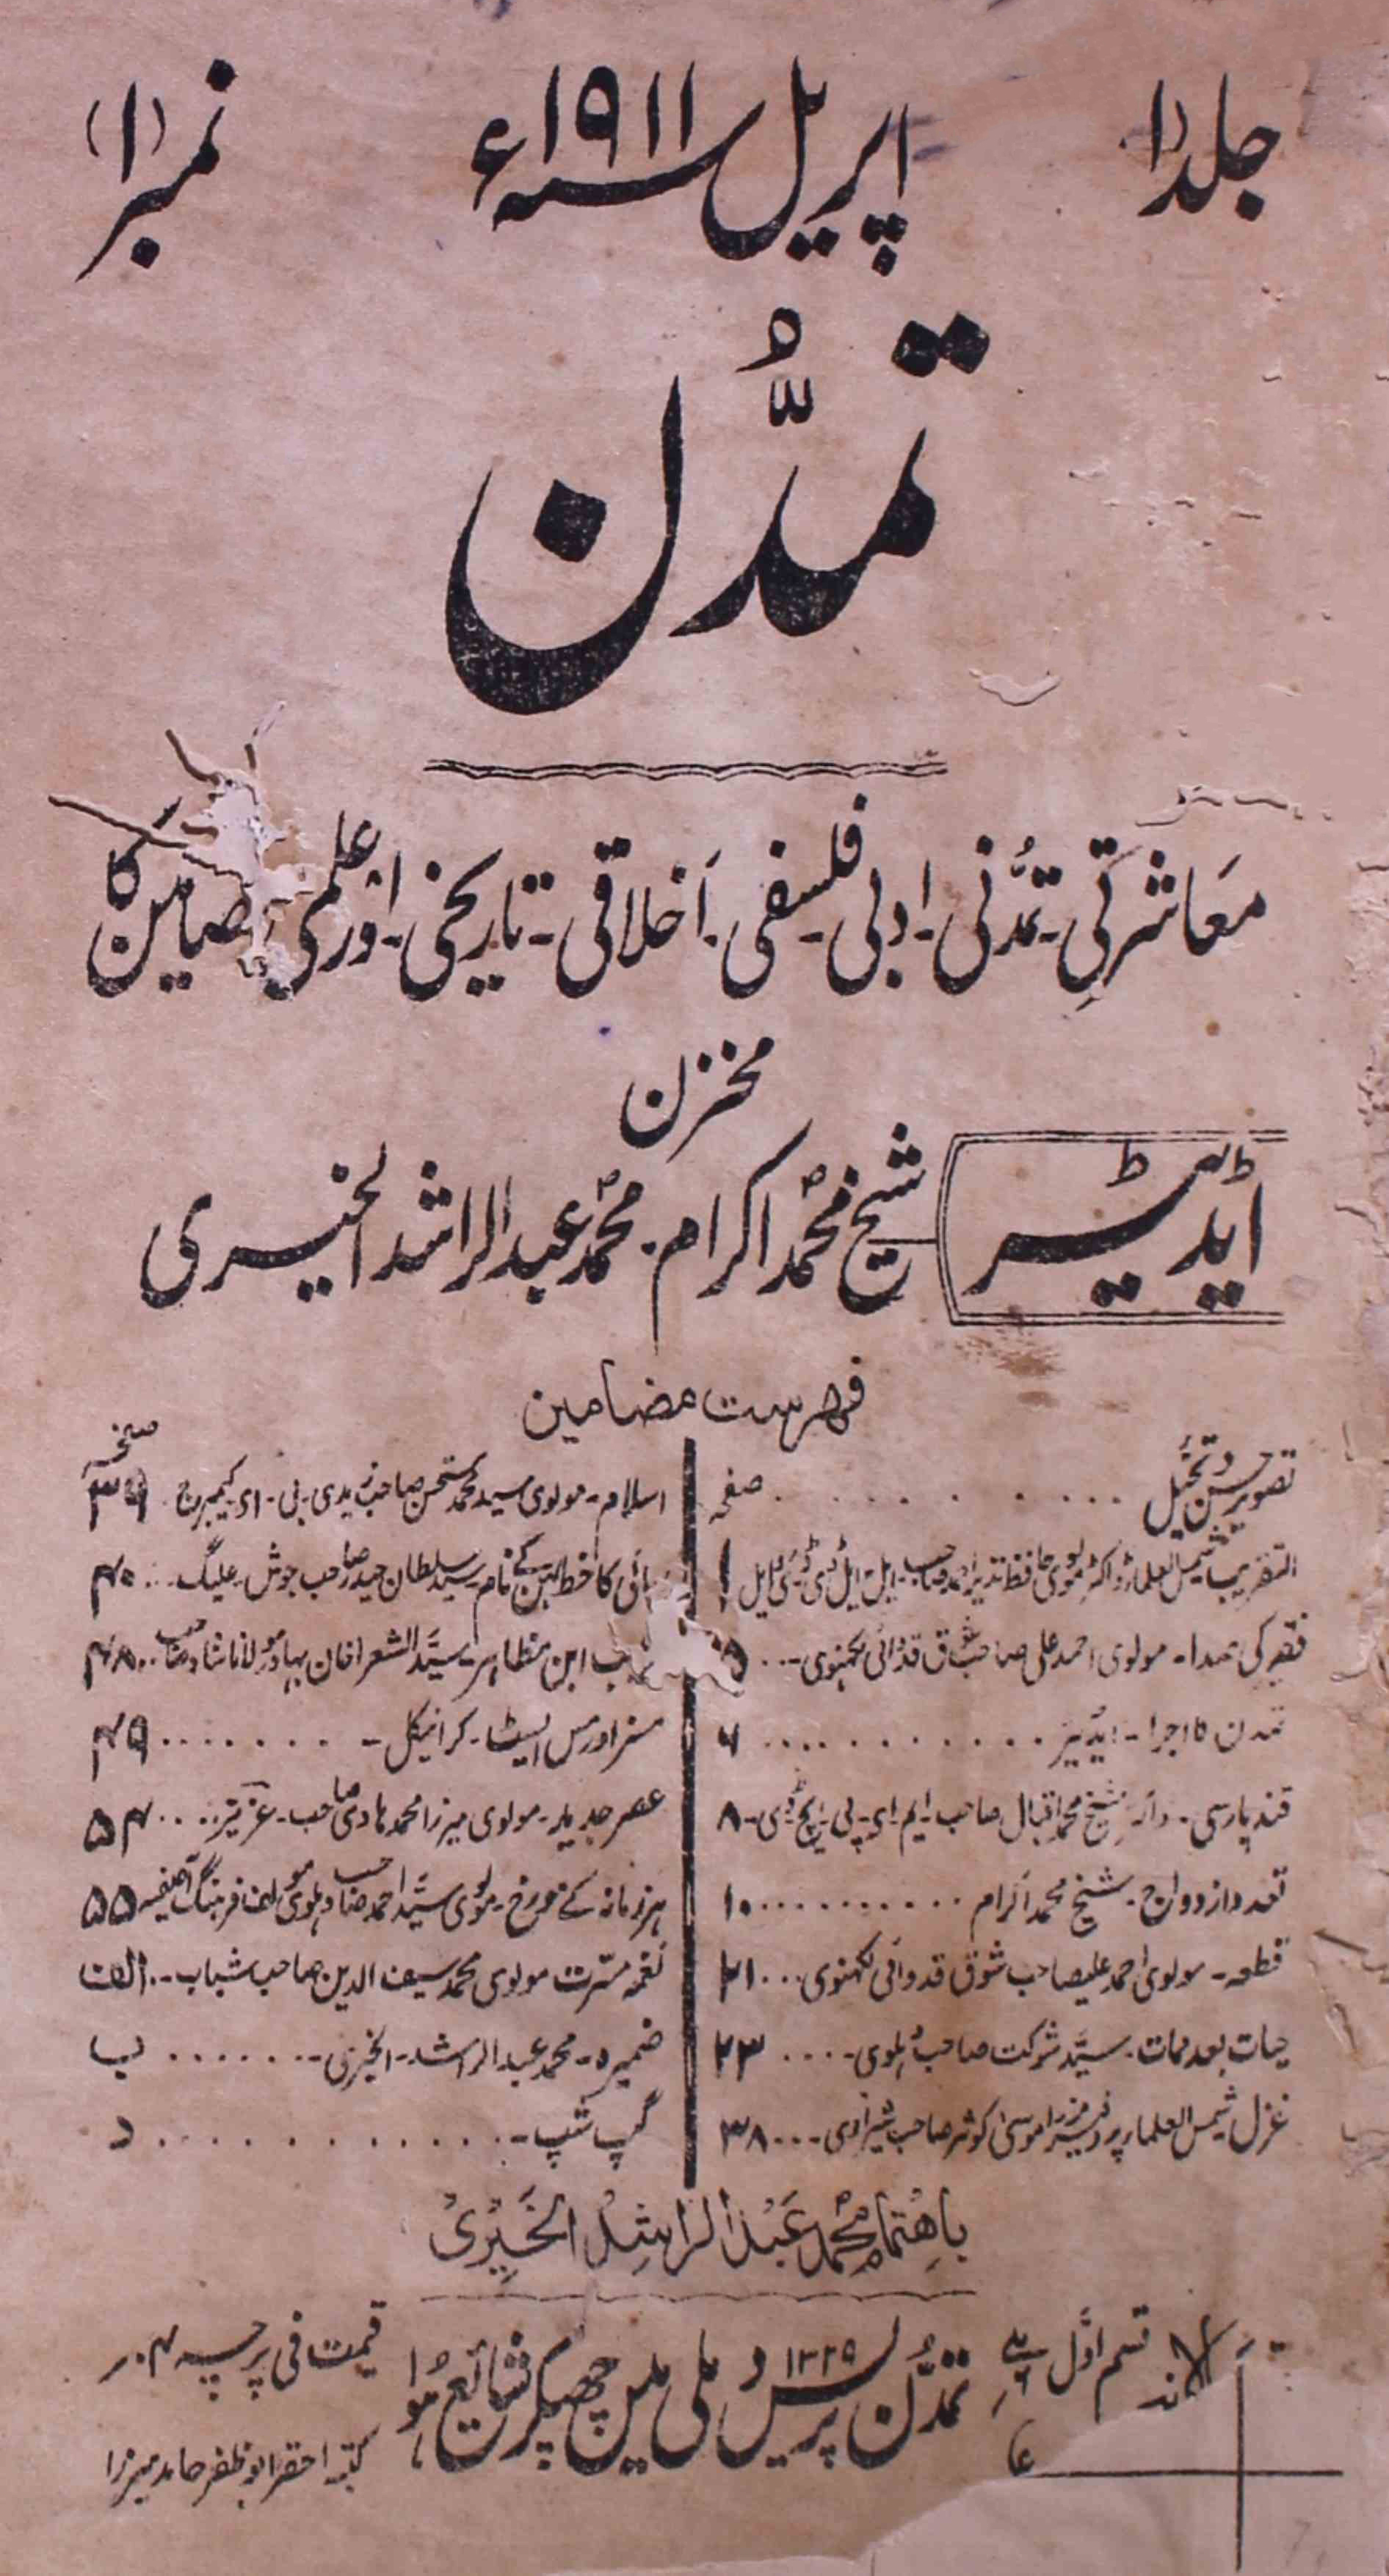 جلد (۱) اپریل سنہ ۱۹۱۱ء نمبر (۱)
تمدُّن
معاشرتی ۔ تمدُّنی ۔ ادبی ۔ فلسفی ۔ اخلاقی ۔ تاریخی ۔ اور علمی مضامین کا
مخزن
ایڈیٹر
شیخ محمد اکرام ۔ محمد عبدالراشد الخیری
فہرست مضامین
تصویر حسن و تخیل . . . . . . . صفحہ
التقریب شمس العلماء ڈاکٹر مولوی حافظ نذیر احمد صاحب ۔ ایل ۔ ایل ڈی ۔ ڈی او ایل ۱
فقیر کی صدا ۔ مولوی احمد علی صاحب شوق قدوائی لکھنوی ۔ ۔ ۔ ۵
تمدن کا اجرا ۔ ایڈیٹر . . . . . . . ۶
قند پارسی ۔ ڈاکٹر شیخ محمد اقبال صاحب ۔ ایم ۔ اے ۔ پی ۔ ایچ ڈی ۔ ۸
تعدد ازدواج ۔ شیخ محمد اکرام . . . . . . . ۱۰
قطعہ ۔ مولوی احمد علیصاحب شوق قدوائی لکھنوی . . . ۲۱
حیات بعد ممات ۔ سید شوکت صاحب دہلوی ۔ . . . ۲۳
غزل شمس العلماء پروفیسر میرزا موسیٰ کوثر صاحب شیرازی ۔ . . . ۳۸
صفحہ
اسلام ۔ مولوی سید محمد مستحسن صاحب زیدی ۔ بی ۔ اے کیمبرج . ۳۹
بھائی کا خط بہن کے نام ۔ سید سلطان حیدر صاحب جوش ۔ علیگ . . . ۴۰
ابن مظاہر ۔ سیّد الشعرا خان بہادر مولانا شاد صاحب . . ۴۸
مسز اور مس ایسٹ ۔ کرانیکل ۔ . . . . . . . ۴۹
عصر جدید ۔ مولوی میرزا محمد ہادی صاحب ۔ عزیز . . . ۵۴
ہر زمانہ کے مورخ ۔ مولوی سیّد احمد صاحب دہلوی مولف فرہنگ آصفیہ ۵۵
نغمہ مسّرت مولوی محمد سیف الدین صاحب شباب ۔ . . الف
ضمیرہ ۔ محمد عبدالراشد ۔ الخیری ۔ . . . . . . . ب
گپ شپ ۔ . . . . . . . . . د
باہتمام محمد عبدالراشد الخیری
قسم اوّل
تمدُّن پریس دہلی میں چھپکر شائع ہوا
۱۳۲۹
قیمت فی پرچہ ۴ ر
کتبہ احقر ابو ظفر حامد میرزا